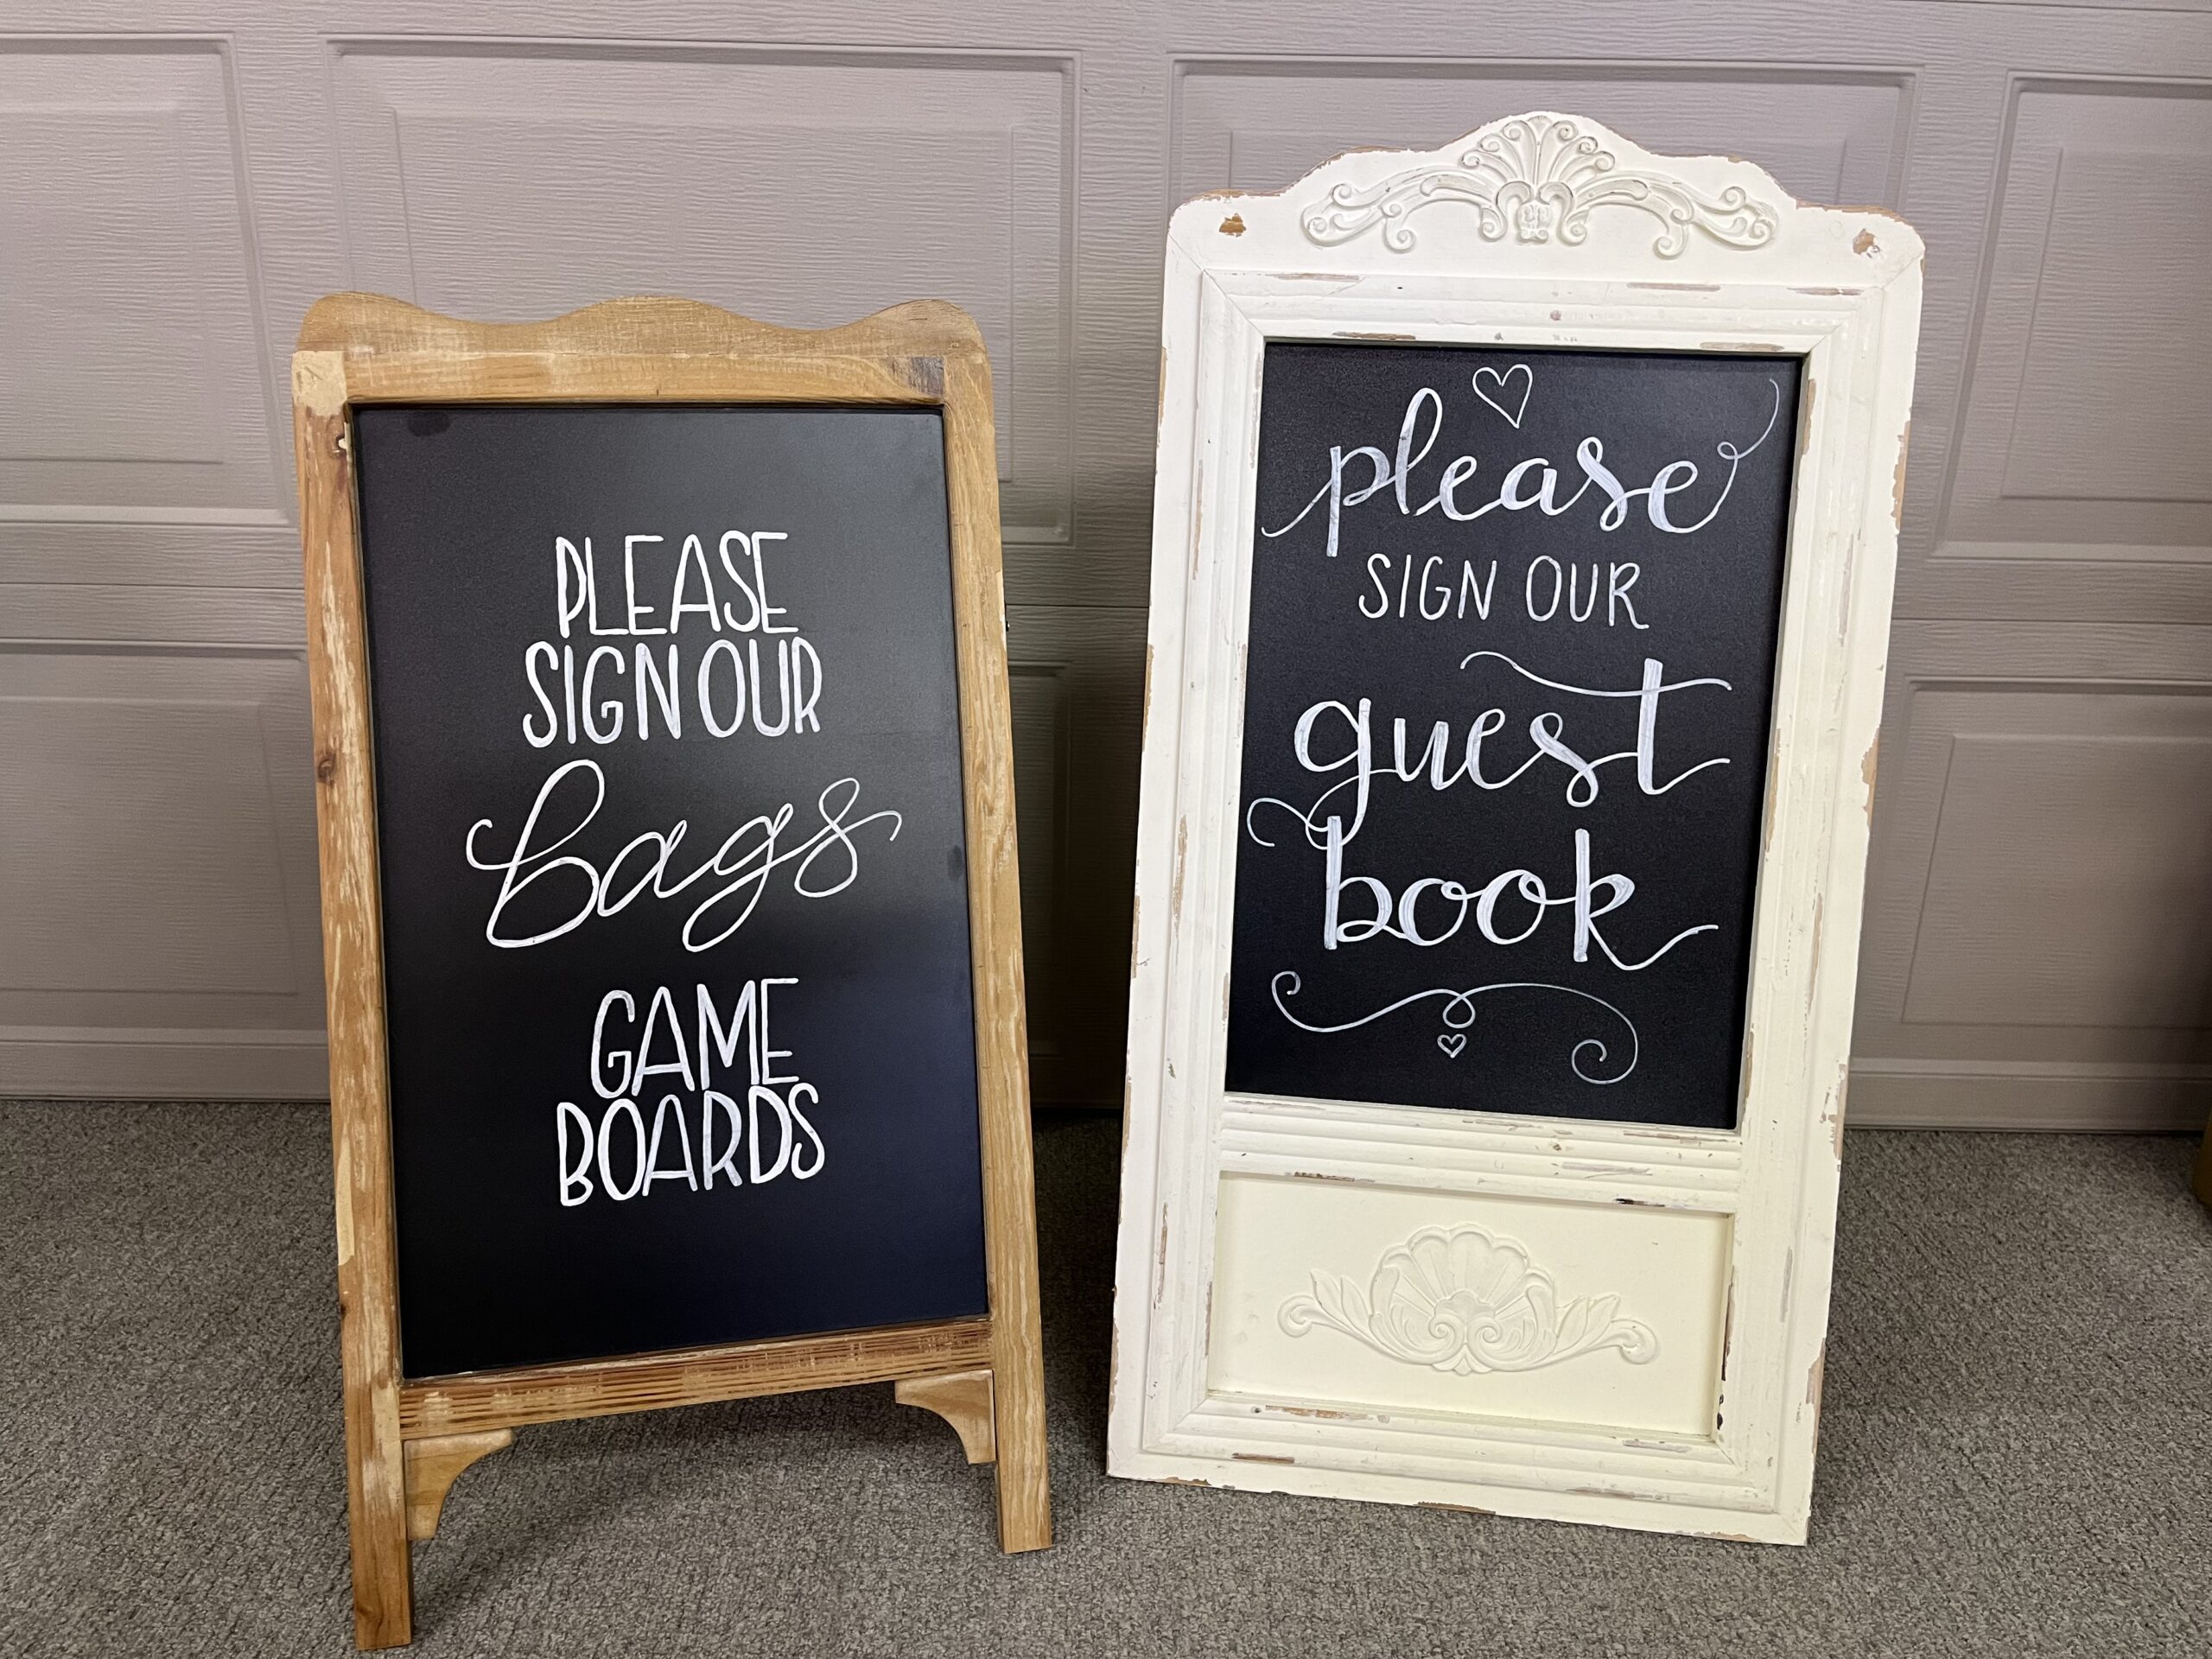 PLEASE
SIGN OUR
bags
GAME
BOARDS
please
SIGN OUR
guest
book